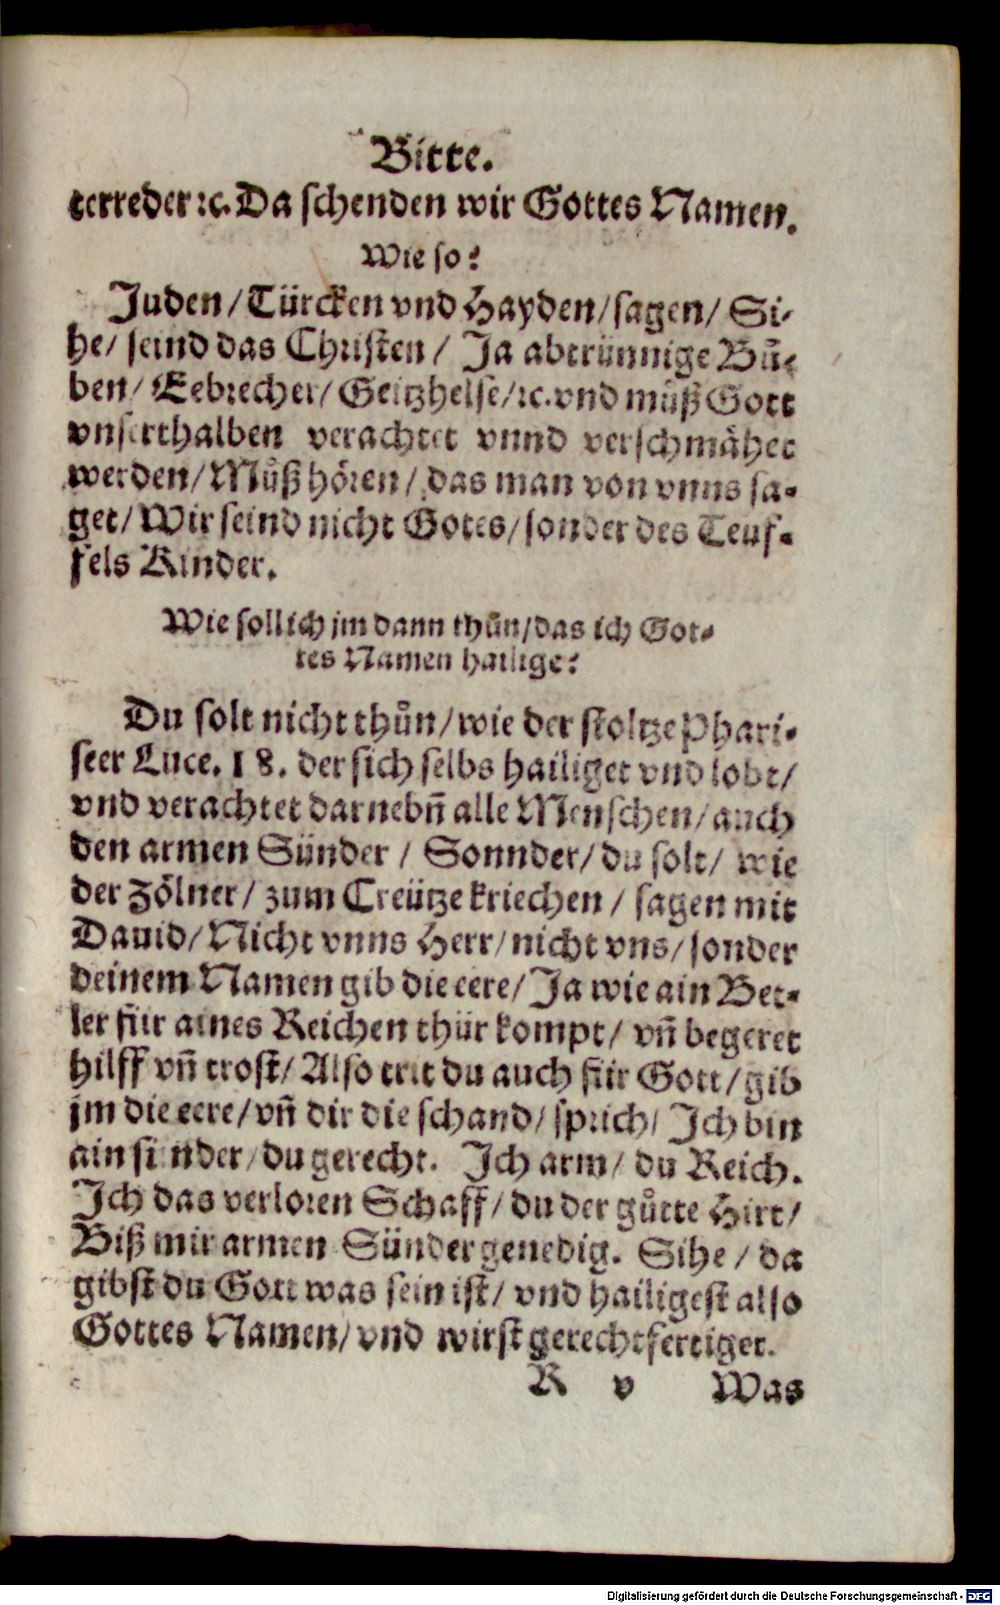 Bitte.
terreder ꝛc. Da schenden wir Gottes Namen.
Wie so?
Juden / Türcken vnd Hayden / sagen / Si-
he / seind das Christen / Ja abtrünnige Bů-
ben / Eebrecher / Geitzhelse / ꝛc. vnd můß Gott
vnserthalben verachtet vnnd verschmähet
werden / Můß hören / das man von vnns sa-
get / Wir seind nicht Gotes / sonder des Teuf-
fels Kinder.
Wie soll ich jm dann thůn / das ich Got-
tes Namen hailige?
Du solt nicht thůn / wie der stoltze Phari-
seer Luce. 18. der sich selbs hailiget vnd lobt /
vnd verachtet darnebñ alle Menschen / auch
den armen Sünder / Sonnder / du solt / wie
der Zölner / zum Creütze kriechen / sagen mit
Dauid / Nicht vnns Herr / nicht vns / sonder
deinem Namen gib die eere / Ja wie ain Bet-
ler für aines Reichen thür kompt / vñ begeret
hilff vñ trost / Also trit du auch für Gott / gib
jm die eere / vñ dir die schand / sprich / Ich bin
ain sünder / du gerecht. Ich arm / du Reich.
Ich das verloren Schaff / du der gůtte Hirt /
Biß mir armen Sünder genedig. Sihe / da
gibst du Gott was sein ist / vnd hailigest also
Gottes Namen / vnd wirst gerechtfertiget.
R v Was
Digitalisierung gefördert durch die Deutsche Forschungsgemeinschaft - DFG